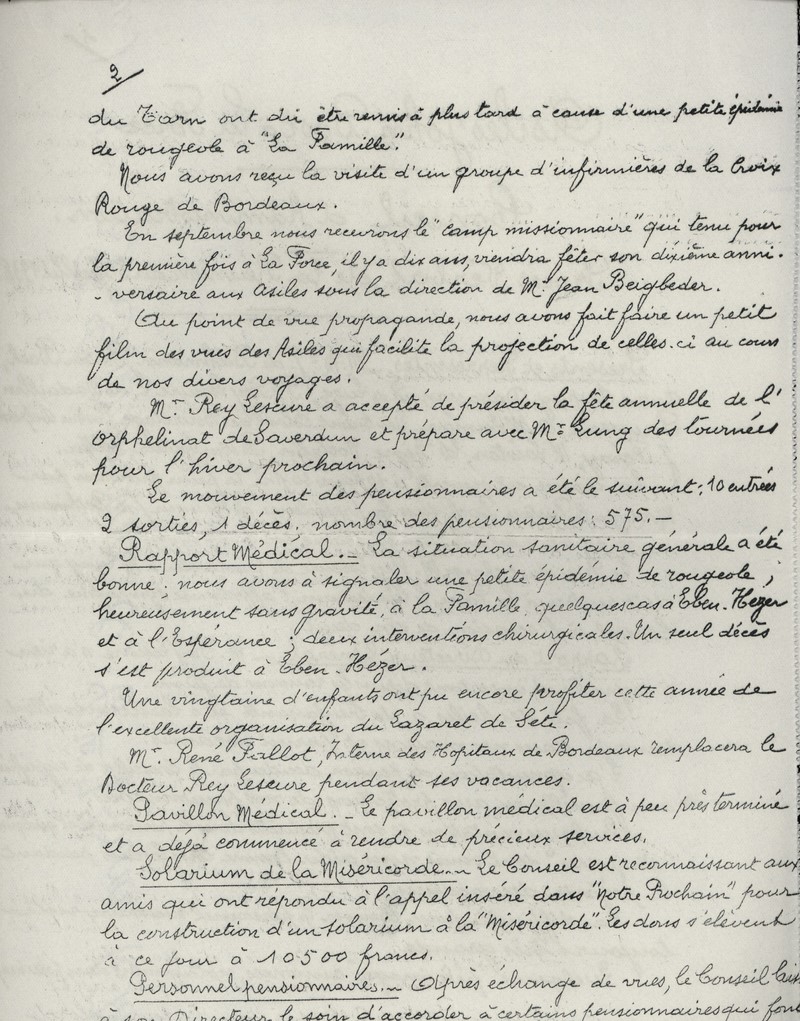 2/
du Tarn ont dû être remis à plus tard à cause d'une petite épidémie
de rougeole à "La Famille".
Nous avons reçu la visite d'un groupe d'infirmières de la Croix
Rouge de Bordeaux.
En septembre nous recevrons le "camp missionnaire" qui tenu pour
la première fois à La Force, il y a dix ans, viendra fêter son dixième anni-
- versaire aux Asiles sous la direction de Mr Jean Beigbeder.
Au point de vue propagande, nous avons fait faire un petit
film des vues des Asiles qui facilite la projection de celles-ci au cours
de nos divers voyages.
Mr Rey Lescure a accepté de présider la fête annuelle de l'
orphelinat de Saverdun et prépare avec Mr Lung des tournées
pour l'hiver prochain.
Le mouvement des pensionnaires a été le suivant : 10 entrées
2 sorties, 1 décès. nombre des pensionnaires : 575.-
Rapport Médical. - La situation sanitaire générale a été
bonne ; nous avons à signaler une petite épidémie de rougeole ,
heureusement sans gravité, à la Famille, quelques cas à Eben-Hezer
et à l'Espérance ; deux interventions chirurgicales. Un seul décès
s'est produit à Eben-Hézer.
Une vingtaine d'enfants ont pu encore profiter cette année de
l'excellente organisation du Lazaret de Sète.
Mr. René Fallot, Interne des Hopitaux de Bordeaux remplacera le
Docteur Rey Lescure pendant ses vacances.
Pavillon Médical. - Le pavillon médical est à peu près terminé
et a déjà commencé à rendre de précieux services.
Solarium de la Miséricorde. - Le Conseil est reconnaissant aux
amis qui ont répondu à l'appel inséré dans "Notre Prochain" pour
la construction d'un solarium à la "Miséricorde". Les dons s'élèvent
à ce jour à 10500 francs.
Personnel pensionnaires. - Après échange de vues, le Conseil
à son Directeur le soin d'accorder à certains pensionnaires qui font